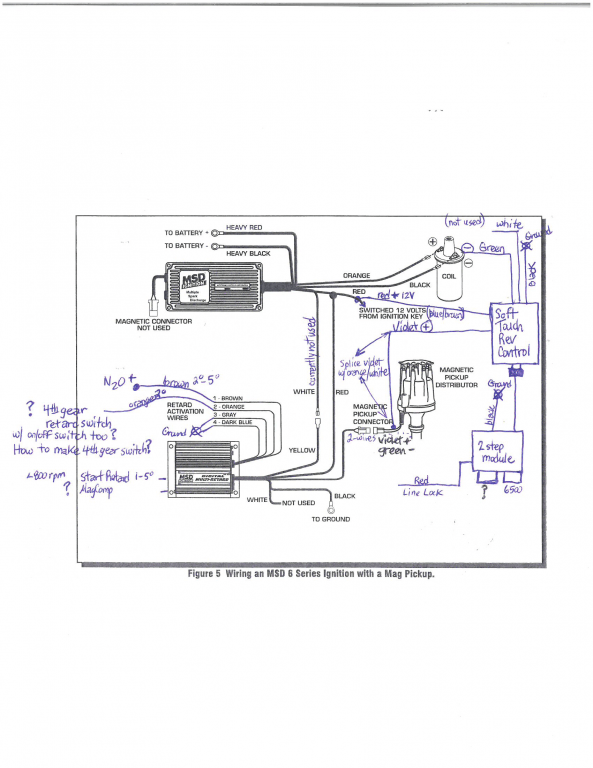 (not used)
white
Ground
HEAVY RED
TO BATTERY +
TO BATTERY -
HEAVY BLACK
+
-
Green
Black
ORANGE
COIL
MSD
IGNITION
Multiple
Spark
Discharge
BLACK
RED
red + 12V
MAGNETIC CONNECTOR
NOT USED
SWITCHED 12 VOLTS
FROM IGNITION KEY
(blue/brown)
Violet (+)
Soft
Touch
Rev
Control
currently not used
Splice violet
w/orange/white
MAGNETIC
PICKUP
DISTRIBUTOR
N2O+
brown 2°-5°
orange 2°
WHITE
RED
Ground
black
? 4th gear
retard switch
w/ on/off switch too?
How to make 4th gear switch?
RETARD
ACTIVATION
WIRES
1 - BROWN
2 - ORANGE
3 - GRAY
4 - DARK BLUE
Ground
MAGNETIC
PICKUP
CONNECTOR
2-wires violet +
green -
2 step
module
YELLOW
<800 rpm
?
Start Retard 1-5°
MagComp
MSD
IGNITION
DIGITAL
MULTI-RETARD
Red
Line Lock
?
6500
WHITE
NOT USED
BLACK
TO GROUND
Figure 5 Wiring an MSD 6 Series Ignition with a Mag Pickup.